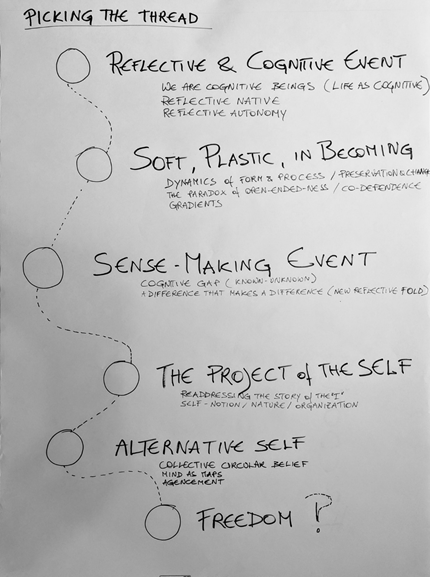 PICKING THE THREAD
REFLECTIVE & COGNITIVE EVENT
WE ARE COGNITIVE BEINGS (LIFE AS COGNITIVE)
REFLECTIVE NATIVE
REFLECTIVE AUTONOMY
SOFT, PLASTIC, IN BECOMING
DYNAMICS of FORM & PROCESS / PRESERVATION & CHANGE
THE PARADOX of OPEN-ENDED-NESS / CO-DEPENDENCE
GRADIENTS
SENSE-MAKING EVENT
COGNITIVE GAP (KNOWN-UNKNOWN)
A DIFFERENCE THAT MAKES A DIFFERENCE (NEW REFLECTIVE FOLD)
THE PROJECT of THE SELF
READDRESSING THE STORY of THE "I"
SELF-NOTION / NATURE / ORGANIZATION
ALTERNATIVE SELF
COLLECTIVE CIRCULAR BELIEF
MIND AS MAPS
AGENCEMENT
FREEDOM ?